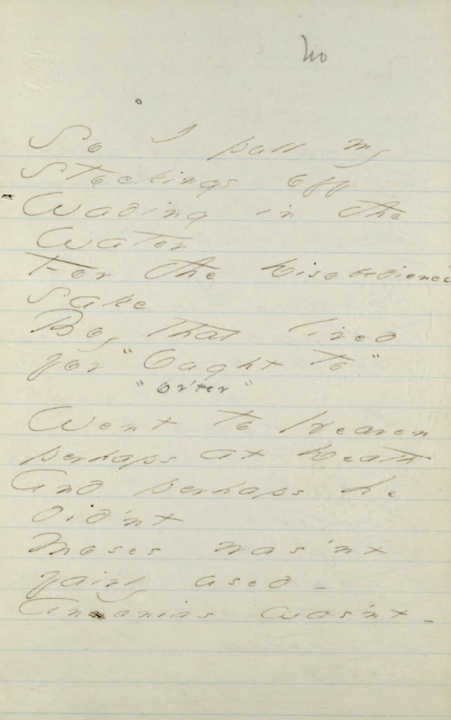 So I pull my
Stockings off
Wading in the
Water
For the Disobedience'
Sake
Boy that lived
for "Ought to"
"or'ter"
Went to Heaven
perhaps at Death
And perhaps he
did'nt
Moses was'nt
fairly used -
Ananias was'nt -